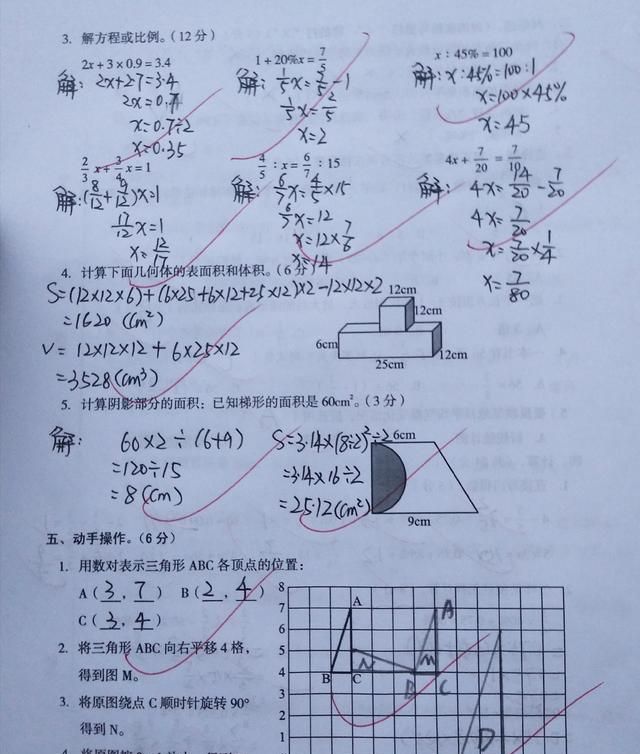 3. 解方程或比例。(12分)
2x+3×0.9=3.4
解: 2x+2.7=3.4
2x=0.7
x=0.7÷2
x=0.35
1+20%x=7/5
解: 1/5x=7/5-1
1/5x=2/5
x=2
x:45%=100
解: x:45%=100:1
x=100×45%
x=45
2/3x+3/4x=1
解: (8/12+9/12)x=1
17/12x=1
x=12/17
4/5:x=6/7:15
解: 6/7x=4/5×15
6/7x=12
x=12×7/6
x=14
4x+7/20=7/10
解: 4x=14/20-7/20
4x=7/20
x=7/20×1/4
x=7/80
4. 计算下面几何体的表面积和体积。(6分)
S=(12×12×6)+(6×25+6×12+25×12)×2-12×12×2
=1620(cm²)
V=12×12×12+6×25×12
=3528(cm³)
12cm
12cm
6cm
12cm
25cm
5. 计算阴影部分的面积:已知梯形的面积是60cm²。(3分)
解: 60×2÷(6+9)
=120÷15
=8(cm)
S=3.14×(8÷2)²÷2
=3.14×16÷2
=25.12(cm²)
6cm
9cm
五、动手操作。(6分)
1. 用数对表示三角形ABC各顶点的位置:
A(3,7) B(2,4)
C(3,4)
2. 将三角形ABC向右平移4格,
得到图M。
3. 将原图绕点C顺时针旋转90°
得到N。
8
7
6
5
4
3
2
1
A
B
C
N
A
B
M
C
D